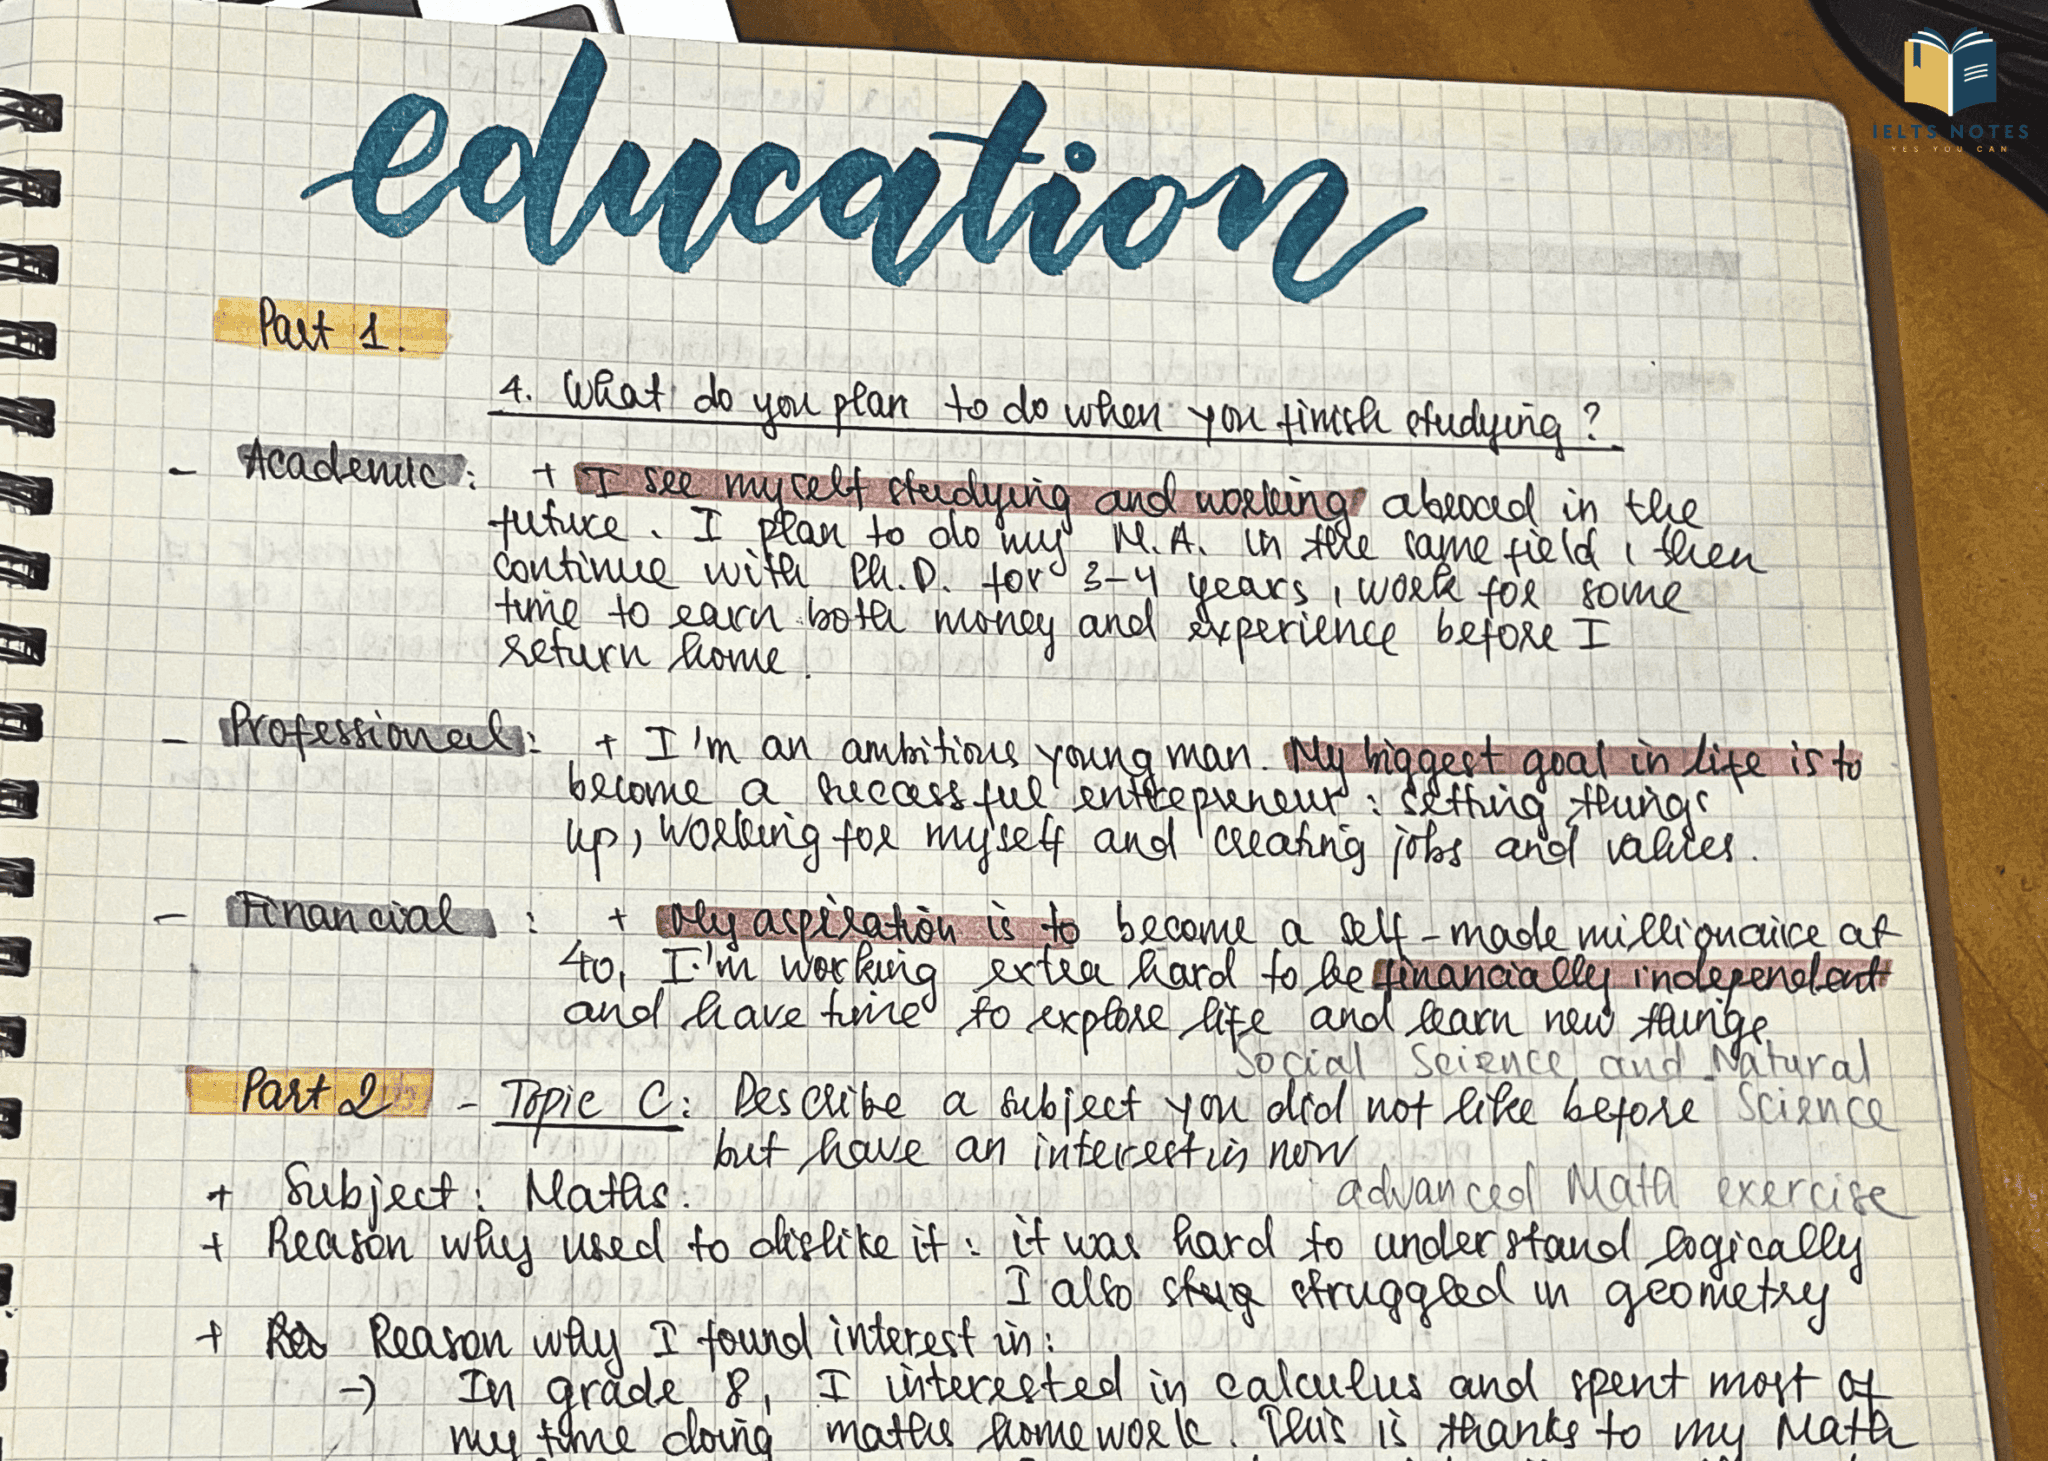 education
IELTS NOTES
YES YOU CAN
Part 1.
4. What do you plan to do when you finish studying?
- Academic: + I see myself studying and working abroad in the
future. I plan to do my M.A. in the same field, then
continue with Ph.D. for 3-4 years, work for some
time to earn both money and experience before I
return home.
- Professional: + I'm an ambitious young man. My biggest goal in life is to
become a successful entrepreneur: setting things
up, working for myself and creating jobs and values.
- Financial : + My aspiration is to become a self-made millionaire at
40, I'm working extra hard to be financially independent
and have time to explore life and learn new things
Social Science and Natural
Part 2 - Topic C: Describe a subject you did not like before Science
but have an interest in now
+ Subject: Maths.
advanced Math exercise
+ Reason why used to dislike it: it was hard to understand logically
I also struggled in geometry
+ Reason why I found interest in:
→ In grade 8, I interested in calculus and spent most of
my time doing maths homework. This is thanks to my Math